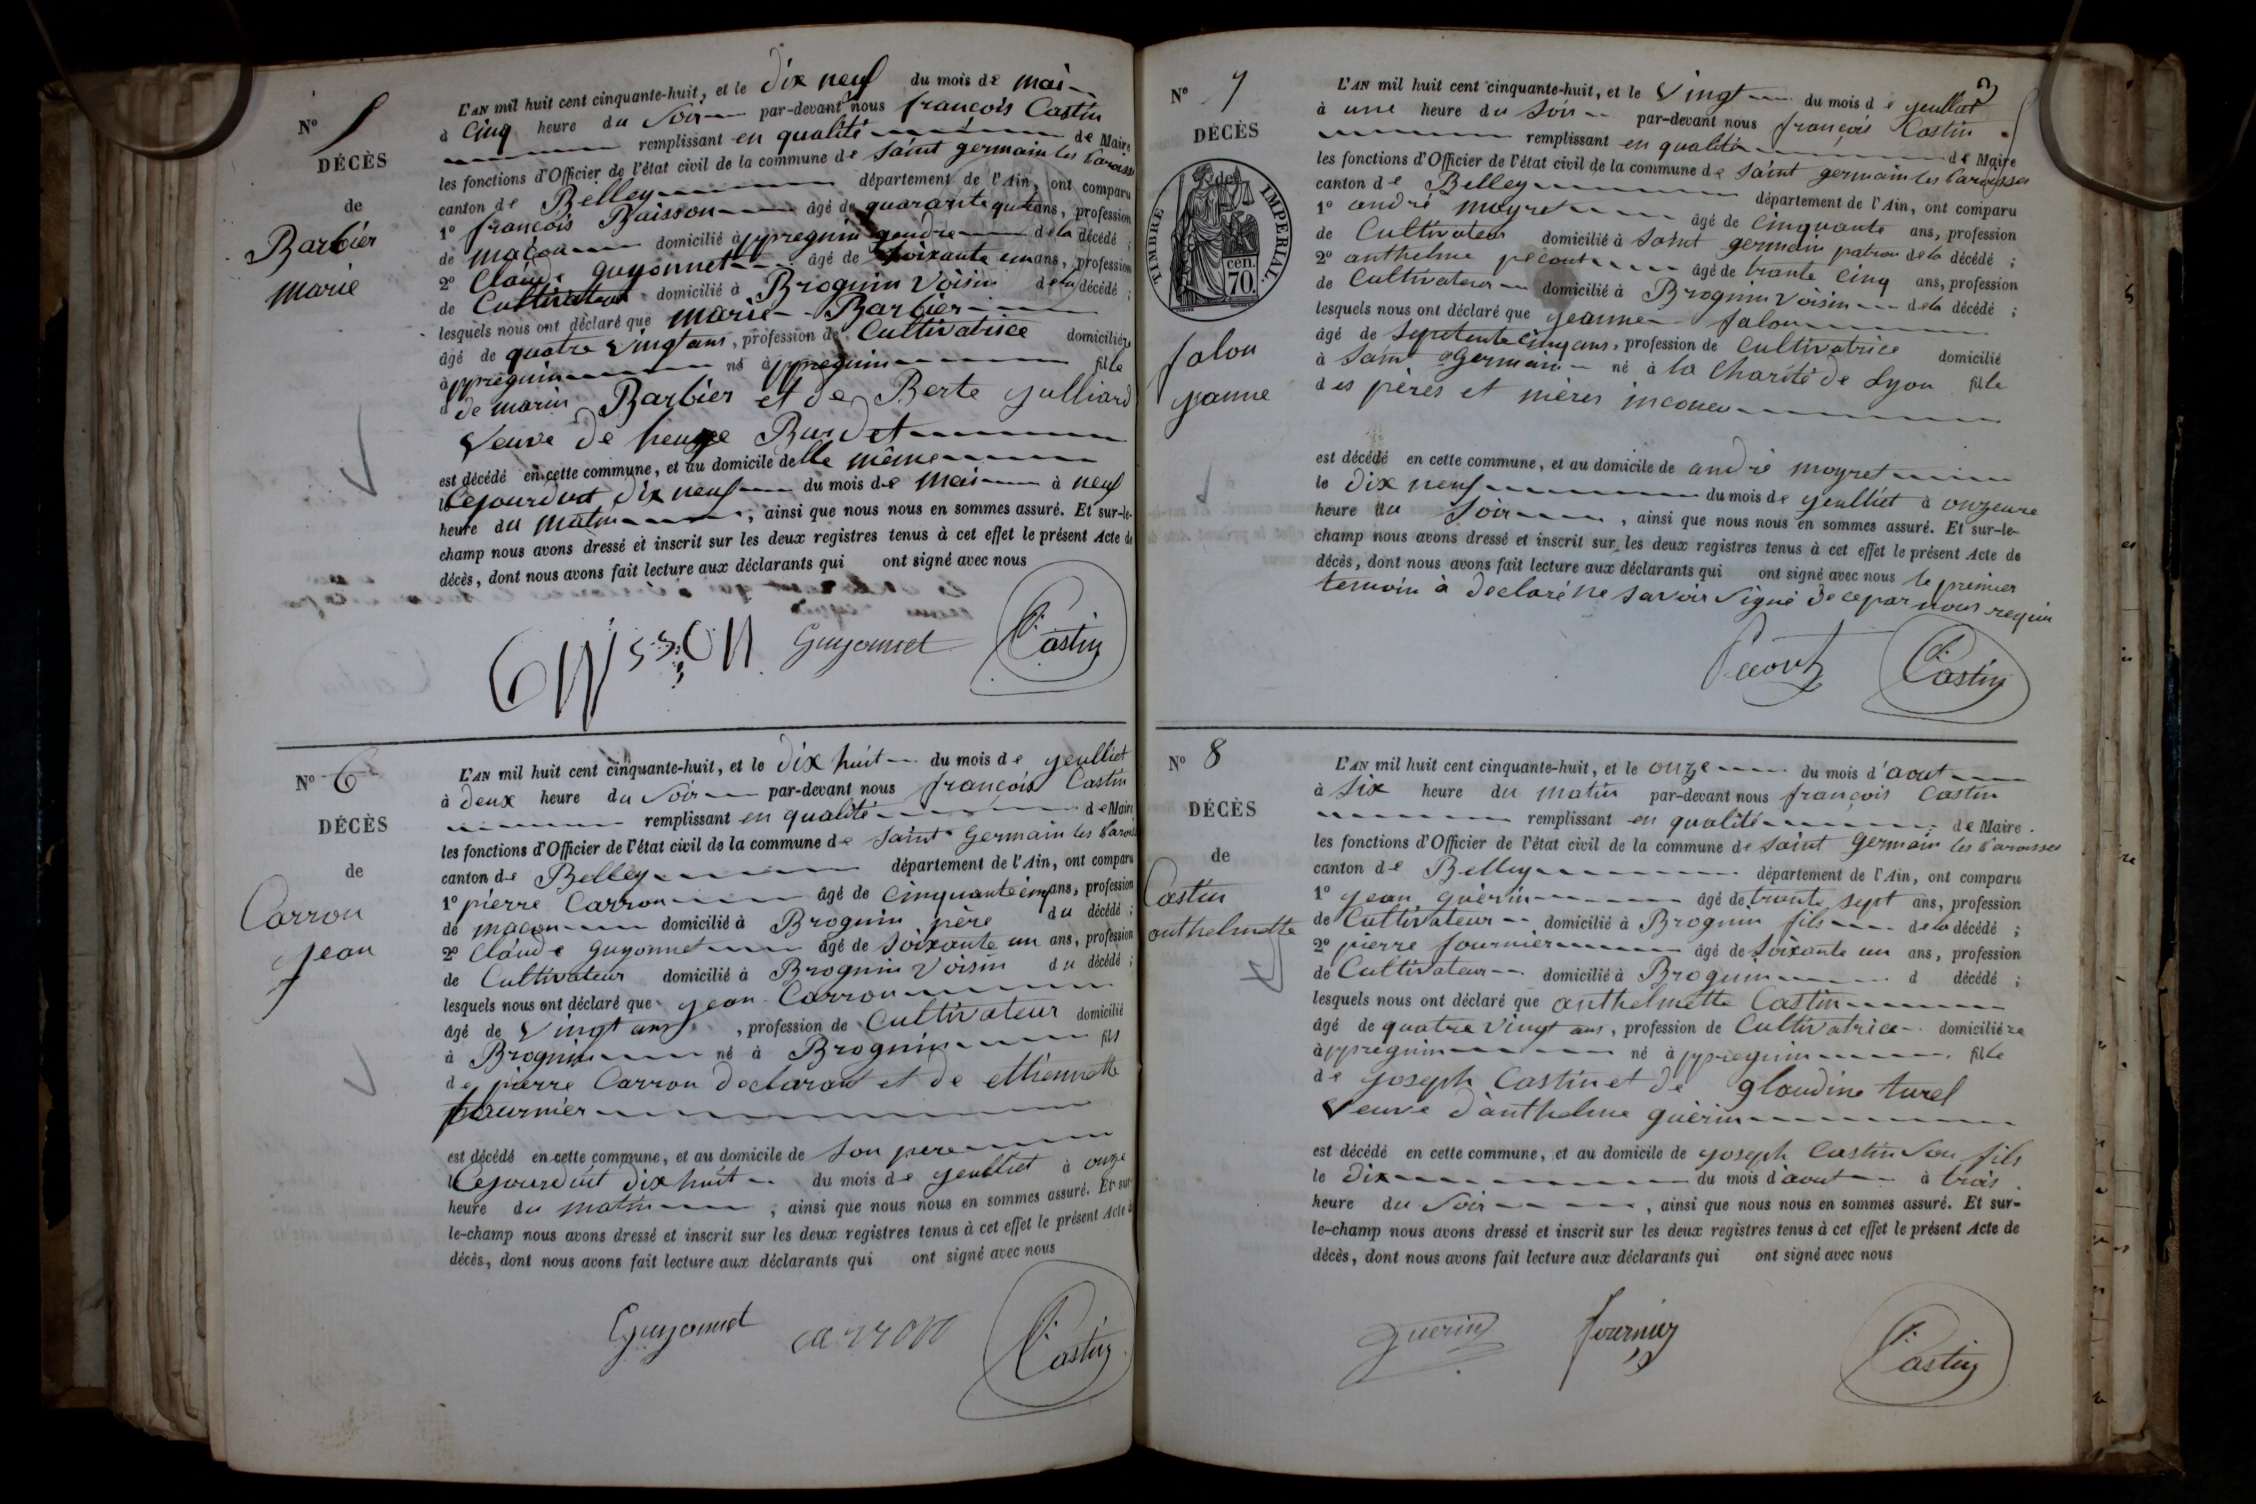 N° 5
DÉCÈS
de
Barbier
marie
L'AN mil huit cent cinquante-huit, et le dix neuf du mois de mai
à cinq heure du soir par-devant nous françois Castin
remplissant en qualité de Maire
les fonctions d'Officier de l'état civil de la commune de saint germain les Paroisses
canton de Belley département de l'Ain, ont comparu
1° françois Baisson âgé de quarante ans, profession
de maçon domicilié à ppregnin gendre de la décédé ;
2° Claude guyonnet âgé de soixante un ans, profession
de Cultivateur domicilié à Brognin Voisin de la décédé ;
lesquels nous ont déclaré que marie Barbier
âgé de quatre vingt ans, profession de Cultivatrice domicilière
à ppregnin né à ppregnin fille
d de marin Barbier et de Berte Julliard
Veuve de Burdet
est décédé en cette commune, et au domicile de lle même
le Cejourduit dix neuf du mois de mai à neuf
heure du matin, ainsi que nous nous en sommes assuré. Et sur-le-
champ nous avons dressé et inscrit sur les deux registres tenus à cet effet le présent Acte de
décès, dont nous avons fait lecture aux déclarants qui ont signé avec nous
Guyonnet Castin
N° 6
DÉCÈS
de
Carron
jean
L'AN mil huit cent cinquante-huit, et le dix huit du mois de jeulliet
à deux heure du soir par-devant nous françois Castin
remplissant en qualité de Maire
les fonctions d'Officier de l'état civil de la commune de saint germain les Paroisses
canton de Belley département de l'Ain, ont comparu
1° pierre Carron âgé de cinquante cinq ans, profession
de maçon domicilié à Brognin père du décédé ;
2° Claude guyonnet âgé de soixante un ans, profession
de Cultivateur domicilié à Brognin Voisin du décédé ;
lesquels nous ont déclaré que jean Carron
âgé de Vingt ans, profession de Cultivateur domicilié
à Brognin né à Brognin fils
de pierre Carron declarant et de ettiennette
fournier
est décédé en cette commune, et au domicile de son pere
le Cejourduit dix huit du mois de jeulliet à onze
heure du matin, ainsi que nous nous en sommes assuré. Et sur-
le-champ nous avons dressé et inscrit sur les deux registres tenus à cet effet le présent Acte de
décès, dont nous avons fait lecture aux déclarants qui ont signé avec nous
Guyonnet carron Castin
3
N° 7
DÉCÈS
de
TIMBRE IMPERIAL.
cen.
70.
falon
jeanne
L'AN mil huit cent cinquante-huit, et le Vingt du mois de jeulliet
à une heure du soir par-devant nous françois Castin
remplissant en qualité de Maire
les fonctions d'Officier de l'état civil de la commune de saint germain les Paroisses
canton de Belley département de l'Ain, ont comparu
1° andré moyret âgé de cinquante ans, profession
de Cultivateur domicilié à saint germain patron de la décédé ;
2° anthelme pecout âgé de trante cinq ans, profession
de Cultivateur domicilié à Brognin Voisin de la décédé ;
lesquels nous ont déclaré que jeanne falon
âgé de septente cinq ans, profession de Cultivatrice domicilié
à saint germain né à la Charité de Lyon fille
des pères et mères inconeu
est décédé en cette commune, et au domicile de andré moyret
le dix neuf du mois de jeulliet à onzeure
heure du soir, ainsi que nous nous en sommes assuré. Et sur-le-
champ nous avons dressé et inscrit sur les deux registres tenus à cet effet le présent Acte de
décès, dont nous avons fait lecture aux déclarants qui ont signé avec nous le premier
temoin à declaré ne savoir signé de ce par nous requin
Pecout Castin
N° 8
DÉCÈS
de
Castin
anthelmette
L'AN mil huit cent cinquante-huit, et le onze du mois d'aout
à six heure du matin par-devant nous françois Castin
remplissant en qualité de Maire.
les fonctions d'Officier de l'état civil de la commune de saint germain les Paroisses
canton de Belley département de l'Ain, ont comparu
1° jean guérin âgé de trante sept ans, profession
de Cultivateur domicilié à Brognin fils de la décédé ;
2° pierre fournier âgé de soixante un ans, profession
de Cultivateur domicilié à Brognin d décédé ;
lesquels nous ont déclaré que anthelmette Castin
âgé de quatre Vingt ans, profession de Cultivatrice domicilière
à ppregnin né à ppregnin fille
de joseph Castin et de glaudine turel
Veuve d'anthelme guérin
est décédé en cette commune, et au domicile de joseph Castin son fils
le dix du mois d'aout à trois
heure du soir, ainsi que nous nous en sommes assuré. Et sur-
le-champ nous avons dressé et inscrit sur les deux registres tenus à cet effet le présent Acte de
décès, dont nous avons fait lecture aux déclarants qui ont signé avec nous
guerin fournier Castin